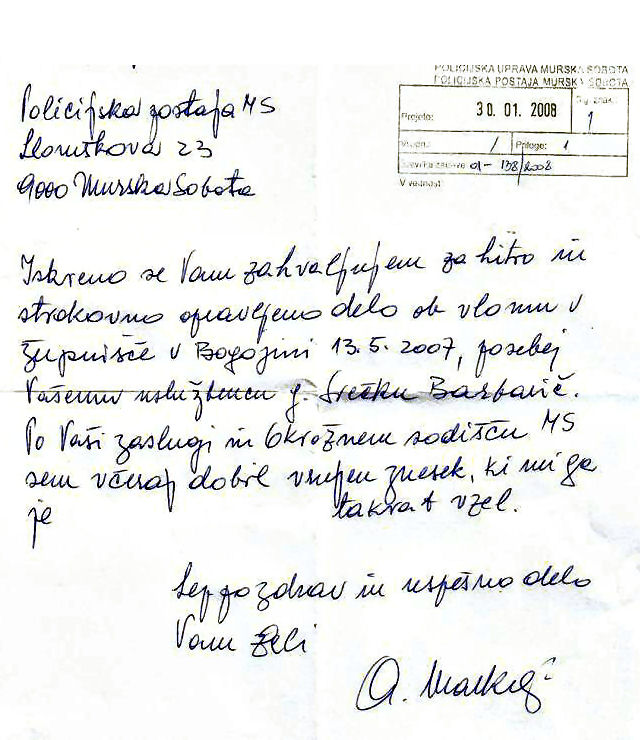 POLICIJSKA UPRAVA MURSKA SOBOTA
POLICIJSKA POSTAJA MURSKA SOBOTA
Prejeto: 30. 01. 2008
1
/ Priloge: 1
01-138/2008
V vednost:
Policijska postaja MS
23
9000 Murska Sobota
Iskreno se Vam zahvaljujem za hitro in
strokovno opravljeno delo ob vlomu v
župnišče v Bogojini 13.5.2007, posebej
Vašemu uslužbencu g. Srečku Barbarič.
Po Vaši zaslugi in Okrožnem sodišču MS
sem včeraj dobil vrnjen znesek, ki mi ga
je takrat vzel.
Lep pozdrav in uspešno delo
Vam želi